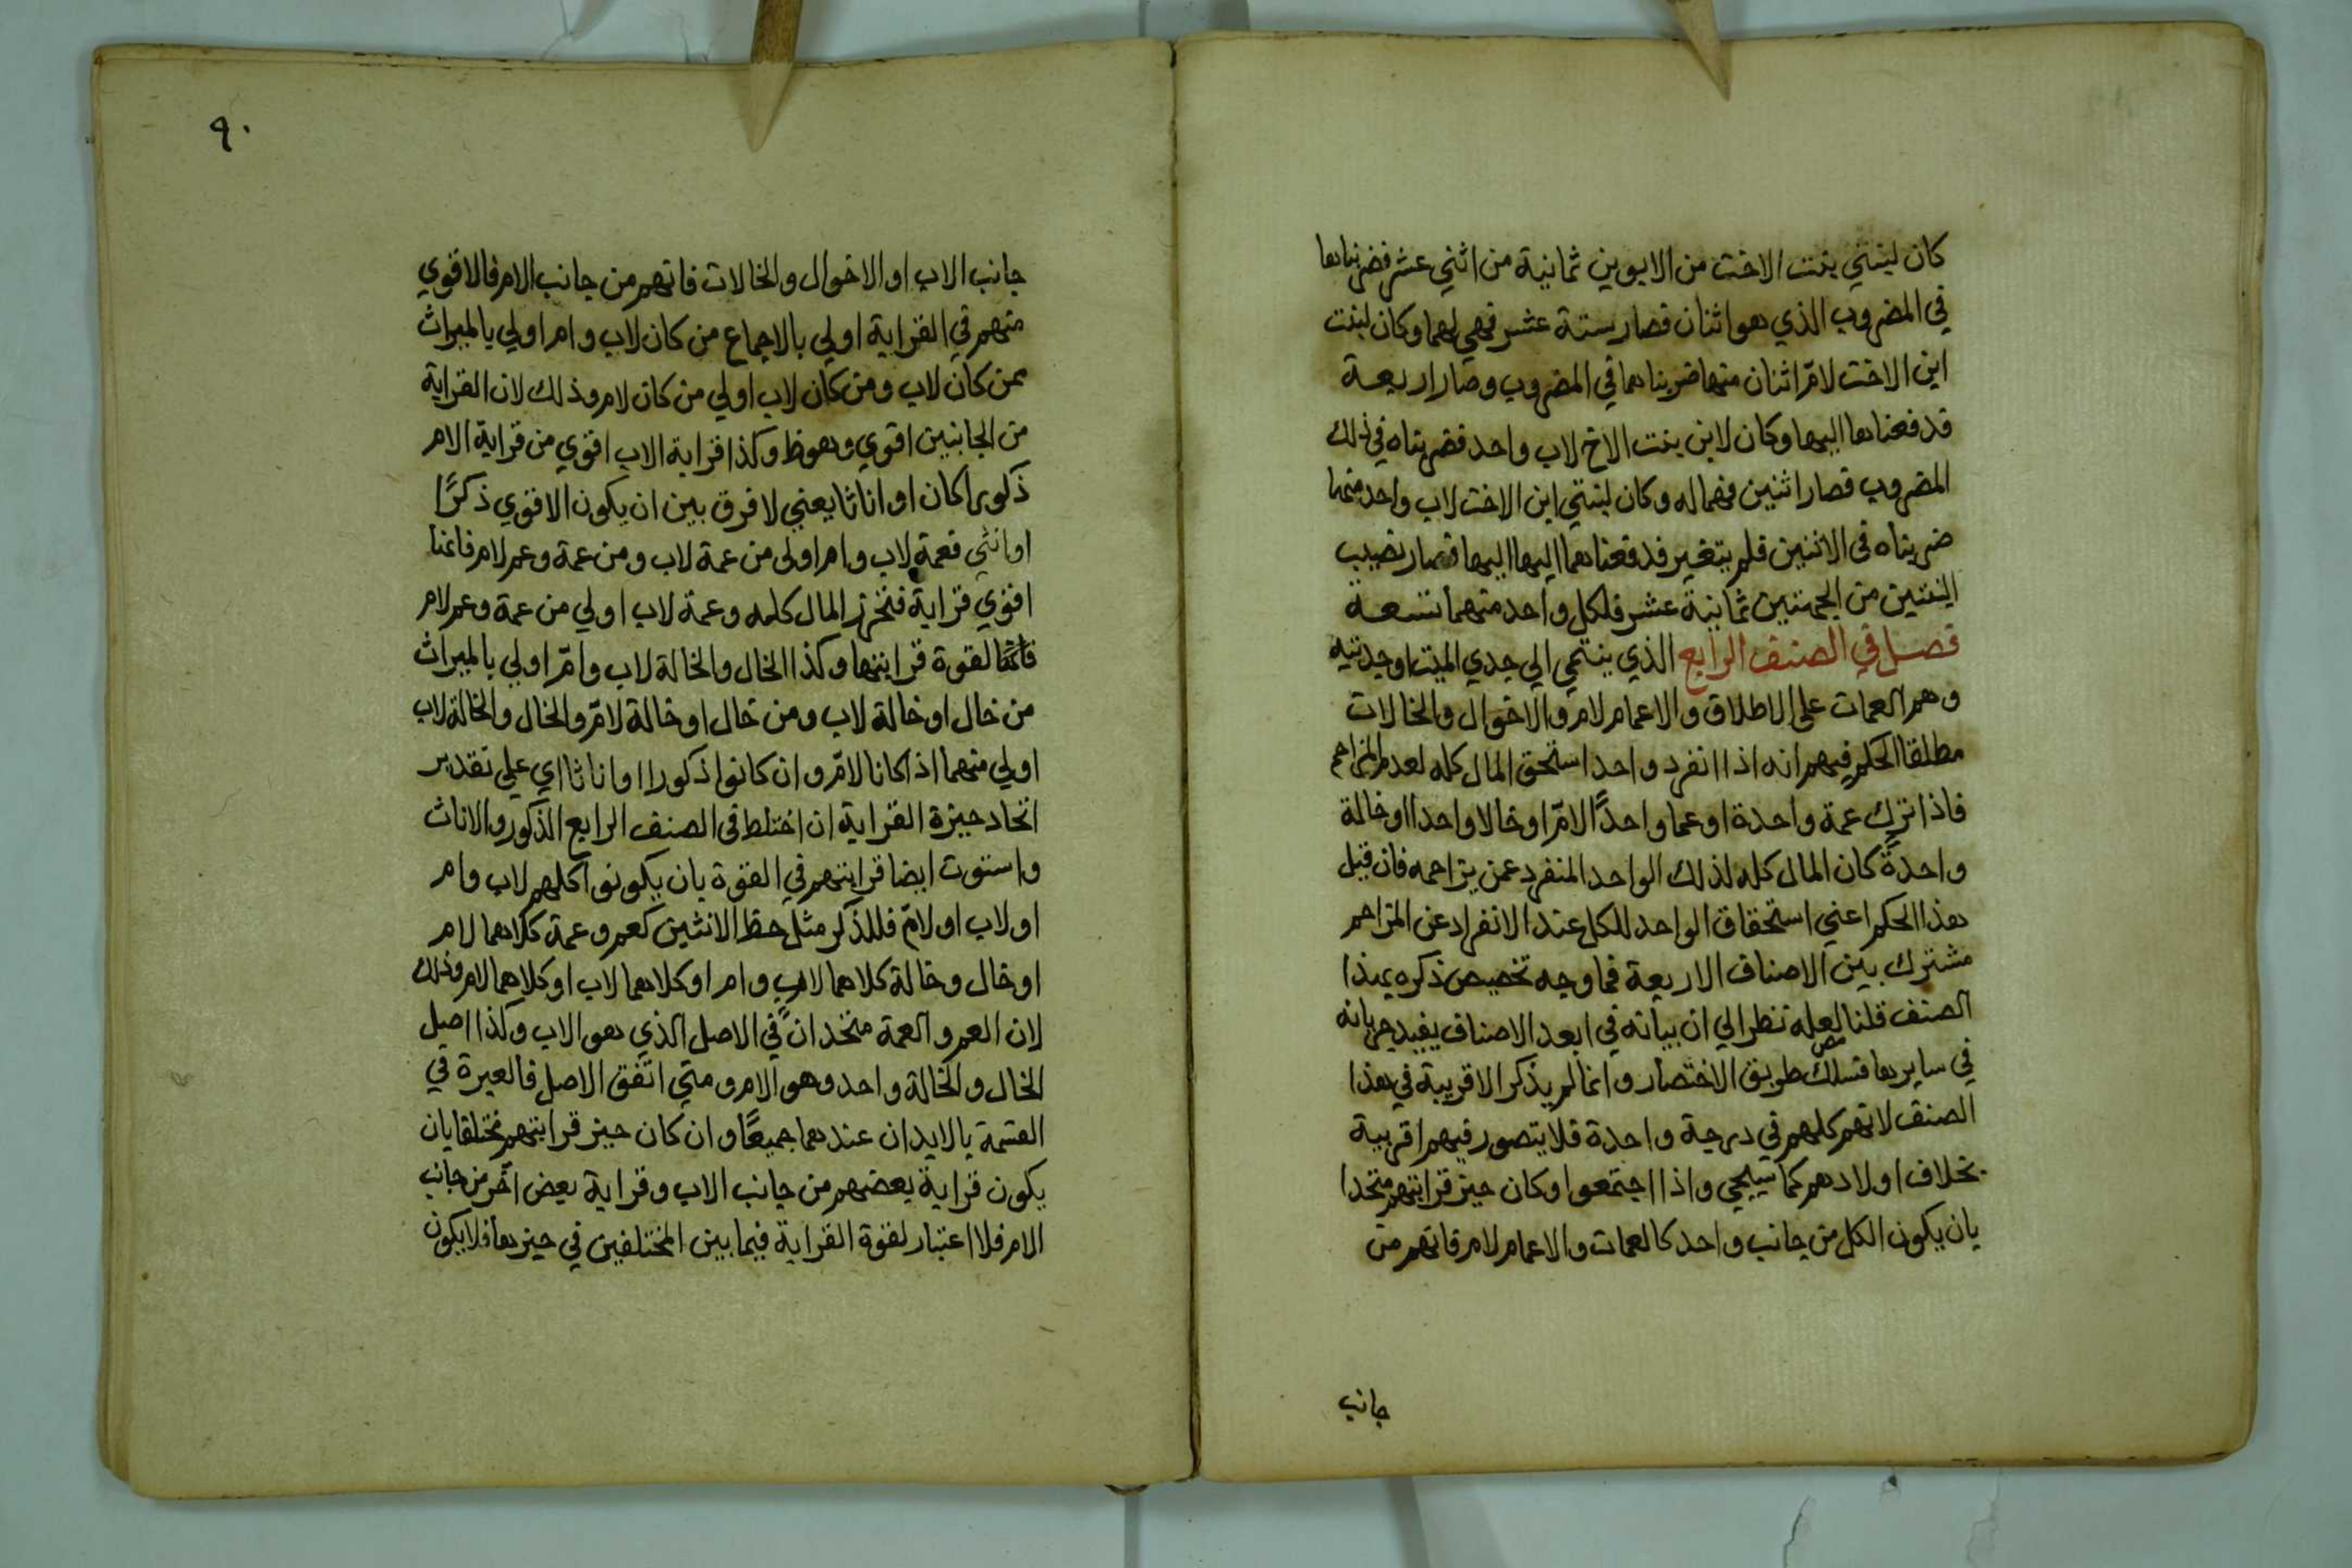 كان لبنتي بنت الاخت من الابوين ثمانية من اثني عشر فضربناها
في المضروب الذي هو اثنان فصار ستة عشر فهي لهما وكان لبنت
ابن الاخت لامّ اثنان منها ضربناهما في المضروب وصار اربعة
فدفعناها اليها وكان لابن بنت الاخ لاب واحد فضربناه في ذلك
المضروب فصار اثنين فهما له وكان لبنتي ابن الاخت لاب واحد منهما
ضربناه في الاثنين فلم يتغير فدفعناهما اليها اليها فصار نصيب
البنتين من الجهتين ثمانية عشر فلكل واحد منهما تسعة
فصل في الصنف الرابع الذي ينتمي الي جدي الميت او جدتيه
وهم العمات على الاطلاق والاعمام لام والاخوال والخالات
مطلقا الحكم فيهم انه اذا انفرد واحد استحق المال كله لعدم المزاحم
فاذا ترك عمة واحدة او عما واحدًا لامّ او خالا واحدا او خالة
واحدةً كان المال كله لذلك الواحد المنفرد عمن يزاحمه فان قيل
هذا الحكم اعني استحقاق الواحد للكل عند الانفراد عن المزاحم
مشترك بين الاصناف الاربعة فما وجه تخصيص ذكره بهذا
الصنف قلنا لعله نظر الي ان بيانه في ابعد الاصناف يفيد جريانه
في سايرها فسلك طريق الاختصار وانما لم يذكر الاقربية في هذا
الصنف لانهم كلهم في درجة واحدة فلا يتصور فيهم اقربية
بخلاف اولادهم كما سيجي واذا اجتمعوا وكان حيز قرابتهم متحدا
بان يكون الكل من جانب واحد كالعمات والاعمام لام فانهم من
جانب
٩٠
جانب الاب او الاخوال والخالات فانهم من جانب الام فالاقوي
منهم في القرابة اولي بالاجماع من كان لاب وام اولي بالميراث
ممن كان لاب ومن كان لاب اولي من كان لام وذلك لان القرابة
من الجانبين اقوي وهو ظ وكذا قرابة الاب اقوي من قرابة الام
ذكورا كان او اناثا يعني لا فرق بين ان يكون الاقوي ذكرًا
او انثي فعمة لاب وام اولى من عمة لاب ومن عمة وعم لام فانما
اقوي قرابة فتحرز المال كله وعمة لاب اولي من عمة وعم لام
لقوة قرابتها وكذا الخال والخالة لاب وامّ اولي بالميراث
من خال او خالة لاب ومن خال او خالة لامّ والخال والخالة لاب
اولي منهما اذا كانا لامّ وان كانوا ذكورا او اناثا اي على تقدير
اتحاد حيزة القرابة ان اختلط في الصنف الرابع الذكور والاناث
واستوت ايضا قرابتهم في القوة بان يكونوا كلهم لاب وام
او لاب او لامّ فللذكر مثل حظ الانثين كعم وعمة كلاهما لام
او خال وخالة كلاهما لاب وام او كلاهما لاب او كلاهما لام وذلك
لان العم والعمة متحدان في الاصل الذي هو الاب وكذا اصل
الخال والخالة واحد وهو الام ومتي اتفق الاصل فالعبرة في
القسمة بالابدان عندهما جميعًا وان كان حيز قرابتهم مختلفا بان
يكون قرابة بعضهم من جانب الاب وقرابة بعض آخر من جانب
الام فلا اعتبار لقوة القرابة فيما بين المختلفين في حيزها فلا يكون